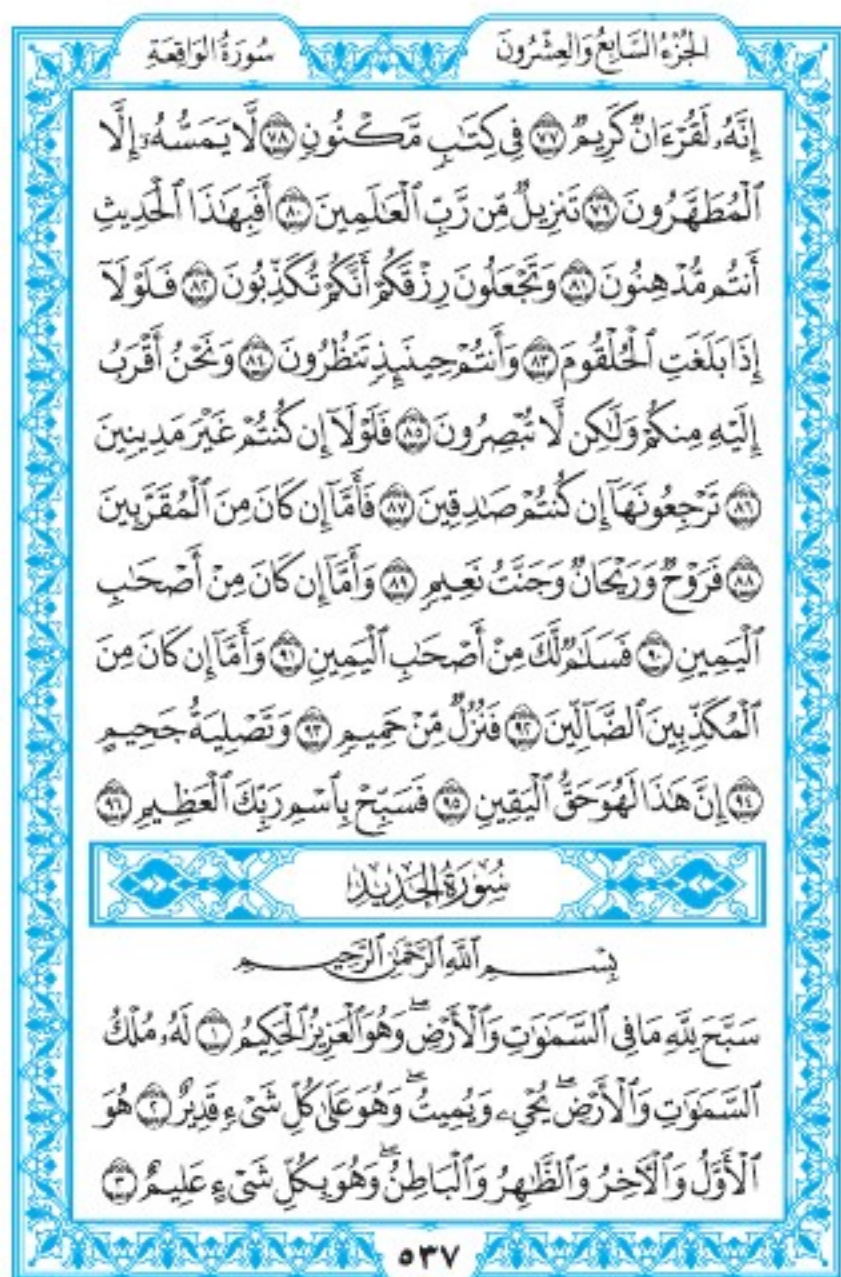 الجُزْءُ السَّابِعُ وَالعِشْرُونَ
سُورَةُ الوَاقِعَةِ
إِنَّهُۥ لَقُرْءَانٌ كَرِيمٌ ٧٧ فِى كِتَٰبٍ مَّكْنُونٍ ٧٨ لَّا يَمَسُّهُۥٓ إِلَّا
ٱلْمُطَهَّرُونَ ٧٩ تَنزِيلٌ مِّن رَّبِّ ٱلْعَٰلَمِينَ ٨٠ أَفَبِهَٰذَا ٱلْحَدِيثِ
أَنتُم مُّدْهِنُونَ ٨١ وَتَجْعَلُونَ رِزْقَكُمْ أَنَّكُمْ تُكَذِّبُونَ ٨٢ فَلَوْلَآ
إِذَا بَلَغَتِ ٱلْحُلْقُومَ ٨٣ وَأَنتُمْ حِينَئِذٍ تَنظُرُونَ ٨٤ وَنَحْنُ أَقْرَبُ
إِلَيْهِ مِنكُمْ وَلَٰكِن لَّا تُبْصِرُونَ ٨٥ فَلَوْلَآ إِن كُنتُمْ غَيْرَ مَدِينِينَ
٨٦ تَرْجِعُونَهَآ إِن كُنتُمْ صَٰدِقِينَ ٨٧ فَأَمَّآ إِن كَانَ مِنَ ٱلْمُقَرَّبِينَ
٨٨ فَرَوْحٌ وَرَيْحَانٌ وَجَنَّتُ نَعِيمٍ ٨٩ وَأَمَّآ إِن كَانَ مِنْ أَصْحَٰبِ
ٱلْيَمِينِ ٩٠ فَسَلَٰمٌ لَّكَ مِنْ أَصْحَٰبِ ٱلْيَمِينِ ٩١ وَأَمَّآ إِن كَانَ مِنَ
ٱلْمُكَذِّبِينَ ٱلضَّآلِّينَ ٩٢ فَنُزُلٌ مِّنْ حَمِيمٍ ٩٣ وَتَصْلِيَةُ جَحِيمٍ
٩٤ إِنَّ هَٰذَا لَهُوَ حَقُّ ٱلْيَقِينِ ٩٥ فَسَبِّحْ بِٱسْمِ رَبِّكَ ٱلْعَظِيمِ ٩٦
سُورَةُ الحَدِيدِ
بِسْمِ ٱللَّهِ ٱلرَّحْمَٰنِ ٱلرَّحِيمِ
سَبَّحَ لِلَّهِ مَا فِى ٱلسَّمَٰوَٰتِ وَٱلْأَرْضِۖ وَهُوَ ٱلْعَزِيزُ ٱلْحَكِيمُ ١ لَهُۥ مُلْكُ
ٱلسَّمَٰوَٰتِ وَٱلْأَرْضِۖ يُحْىِۦ وَيُمِيتُۖ وَهُوَ عَلَىٰ كُلِّ شَىْءٍ قَدِيرٌ ٢ هُوَ
ٱلْأَوَّلُ وَٱلْءَاخِرُ وَٱلظَّٰهِرُ وَٱلْبَاطِنُۖ وَهُوَ بِكُلِّ شَىْءٍ عَلِيمٌ ٣
٥٣٧